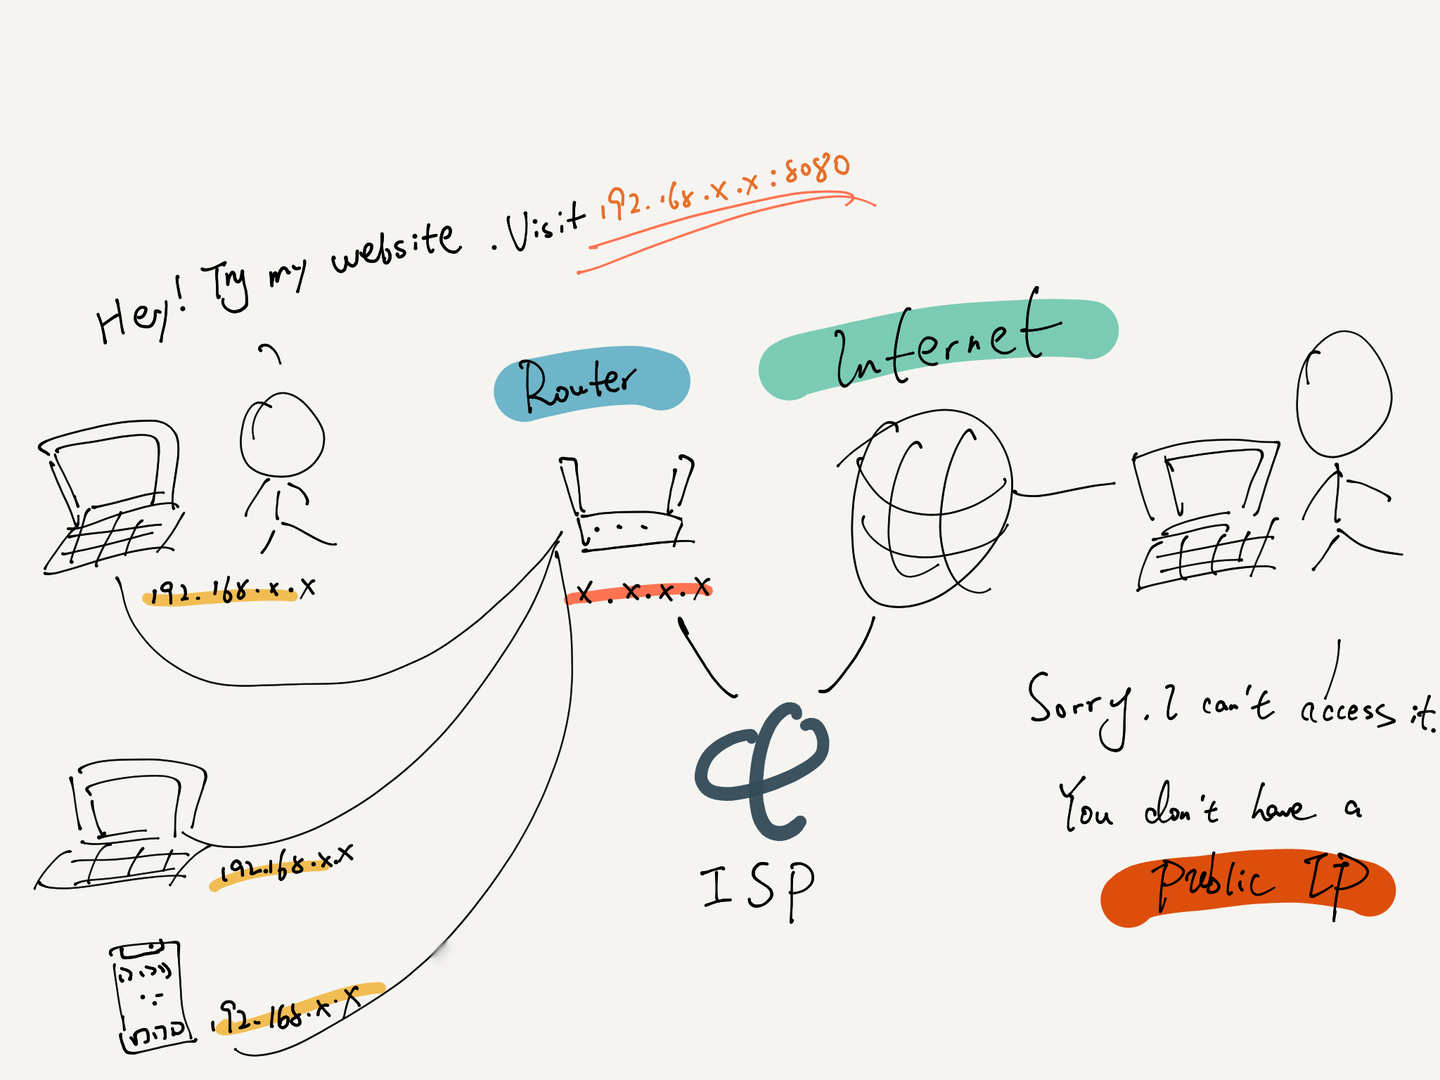 Hey! Try my website . Visit 192.168.x.x:8080
Router
Internet
192.168.x.x
x.x.x.x
Sorry. I can't access it.
You don't have a
Public IP
192.168.x.x
ISP
192.168.x.x